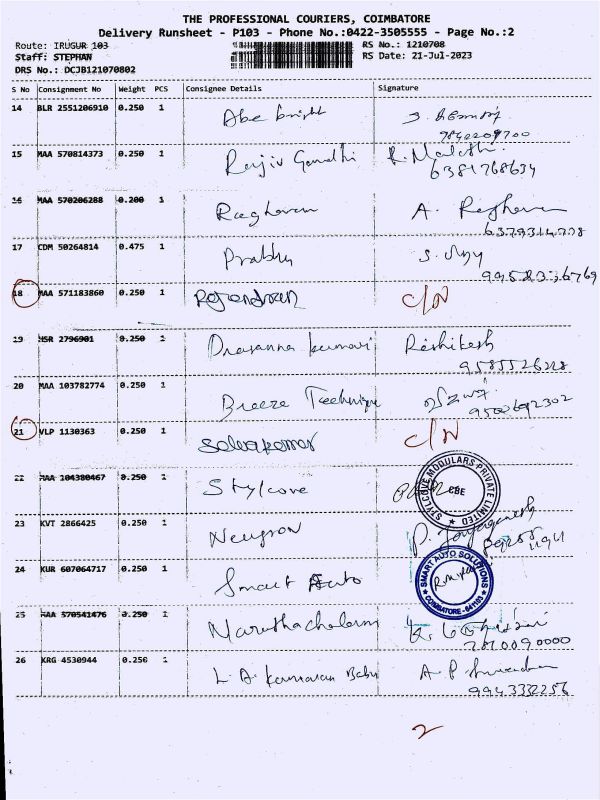 THE PROFESSIONAL COURIERS, COIMBATORE
Delivery Runsheet - P103 - Phone No.:0422-3505555 - Page No.:2
Route: IRUGUR 103
RS No.: 1210708
Staff: STEPHAN
RS Date: 21-Jul-2023
DRS No.: DCJB121070802
S No Consignment No Weight PCS Consignee Details Signature
14 BLR 2551206910 0.250 1 Abe bright
15 MAA 570814373 0.250 1 Rajiv Gandhi R. Malathi
6381768634
16 MAA 570206288 0.200 1 Raghavan A. Raghavan
17 CDM 50264814 0.475 1 Prabhu
18 MAA 571183860 0.250 1 Rajendran C/N
19 MSR 2796901 0.250 1 Prasanna kumari Rishikesh
20 MAA 103782774 0.250 1 Breeze Technique
9500692302
21 VLP 1130363 0.250 1 Selvakumar C/N
22 MAA 104380467 0.250 1 Stylcove
STYLCOVE MODULARS PRIVATE LIMITED
CBE
23 KVT 2866425 0.250 1 Newgron
24 KUR 607064717 0.250 1 Smart Auto
SMART AUTO SOLUTIONS
COIMBATORE-641103
25 MAA 570541476 0.250 1 Maruthachalam
7810090000
26 KRG 4530944 0.250 1 L. A. kannavan Babu
9943332256
2